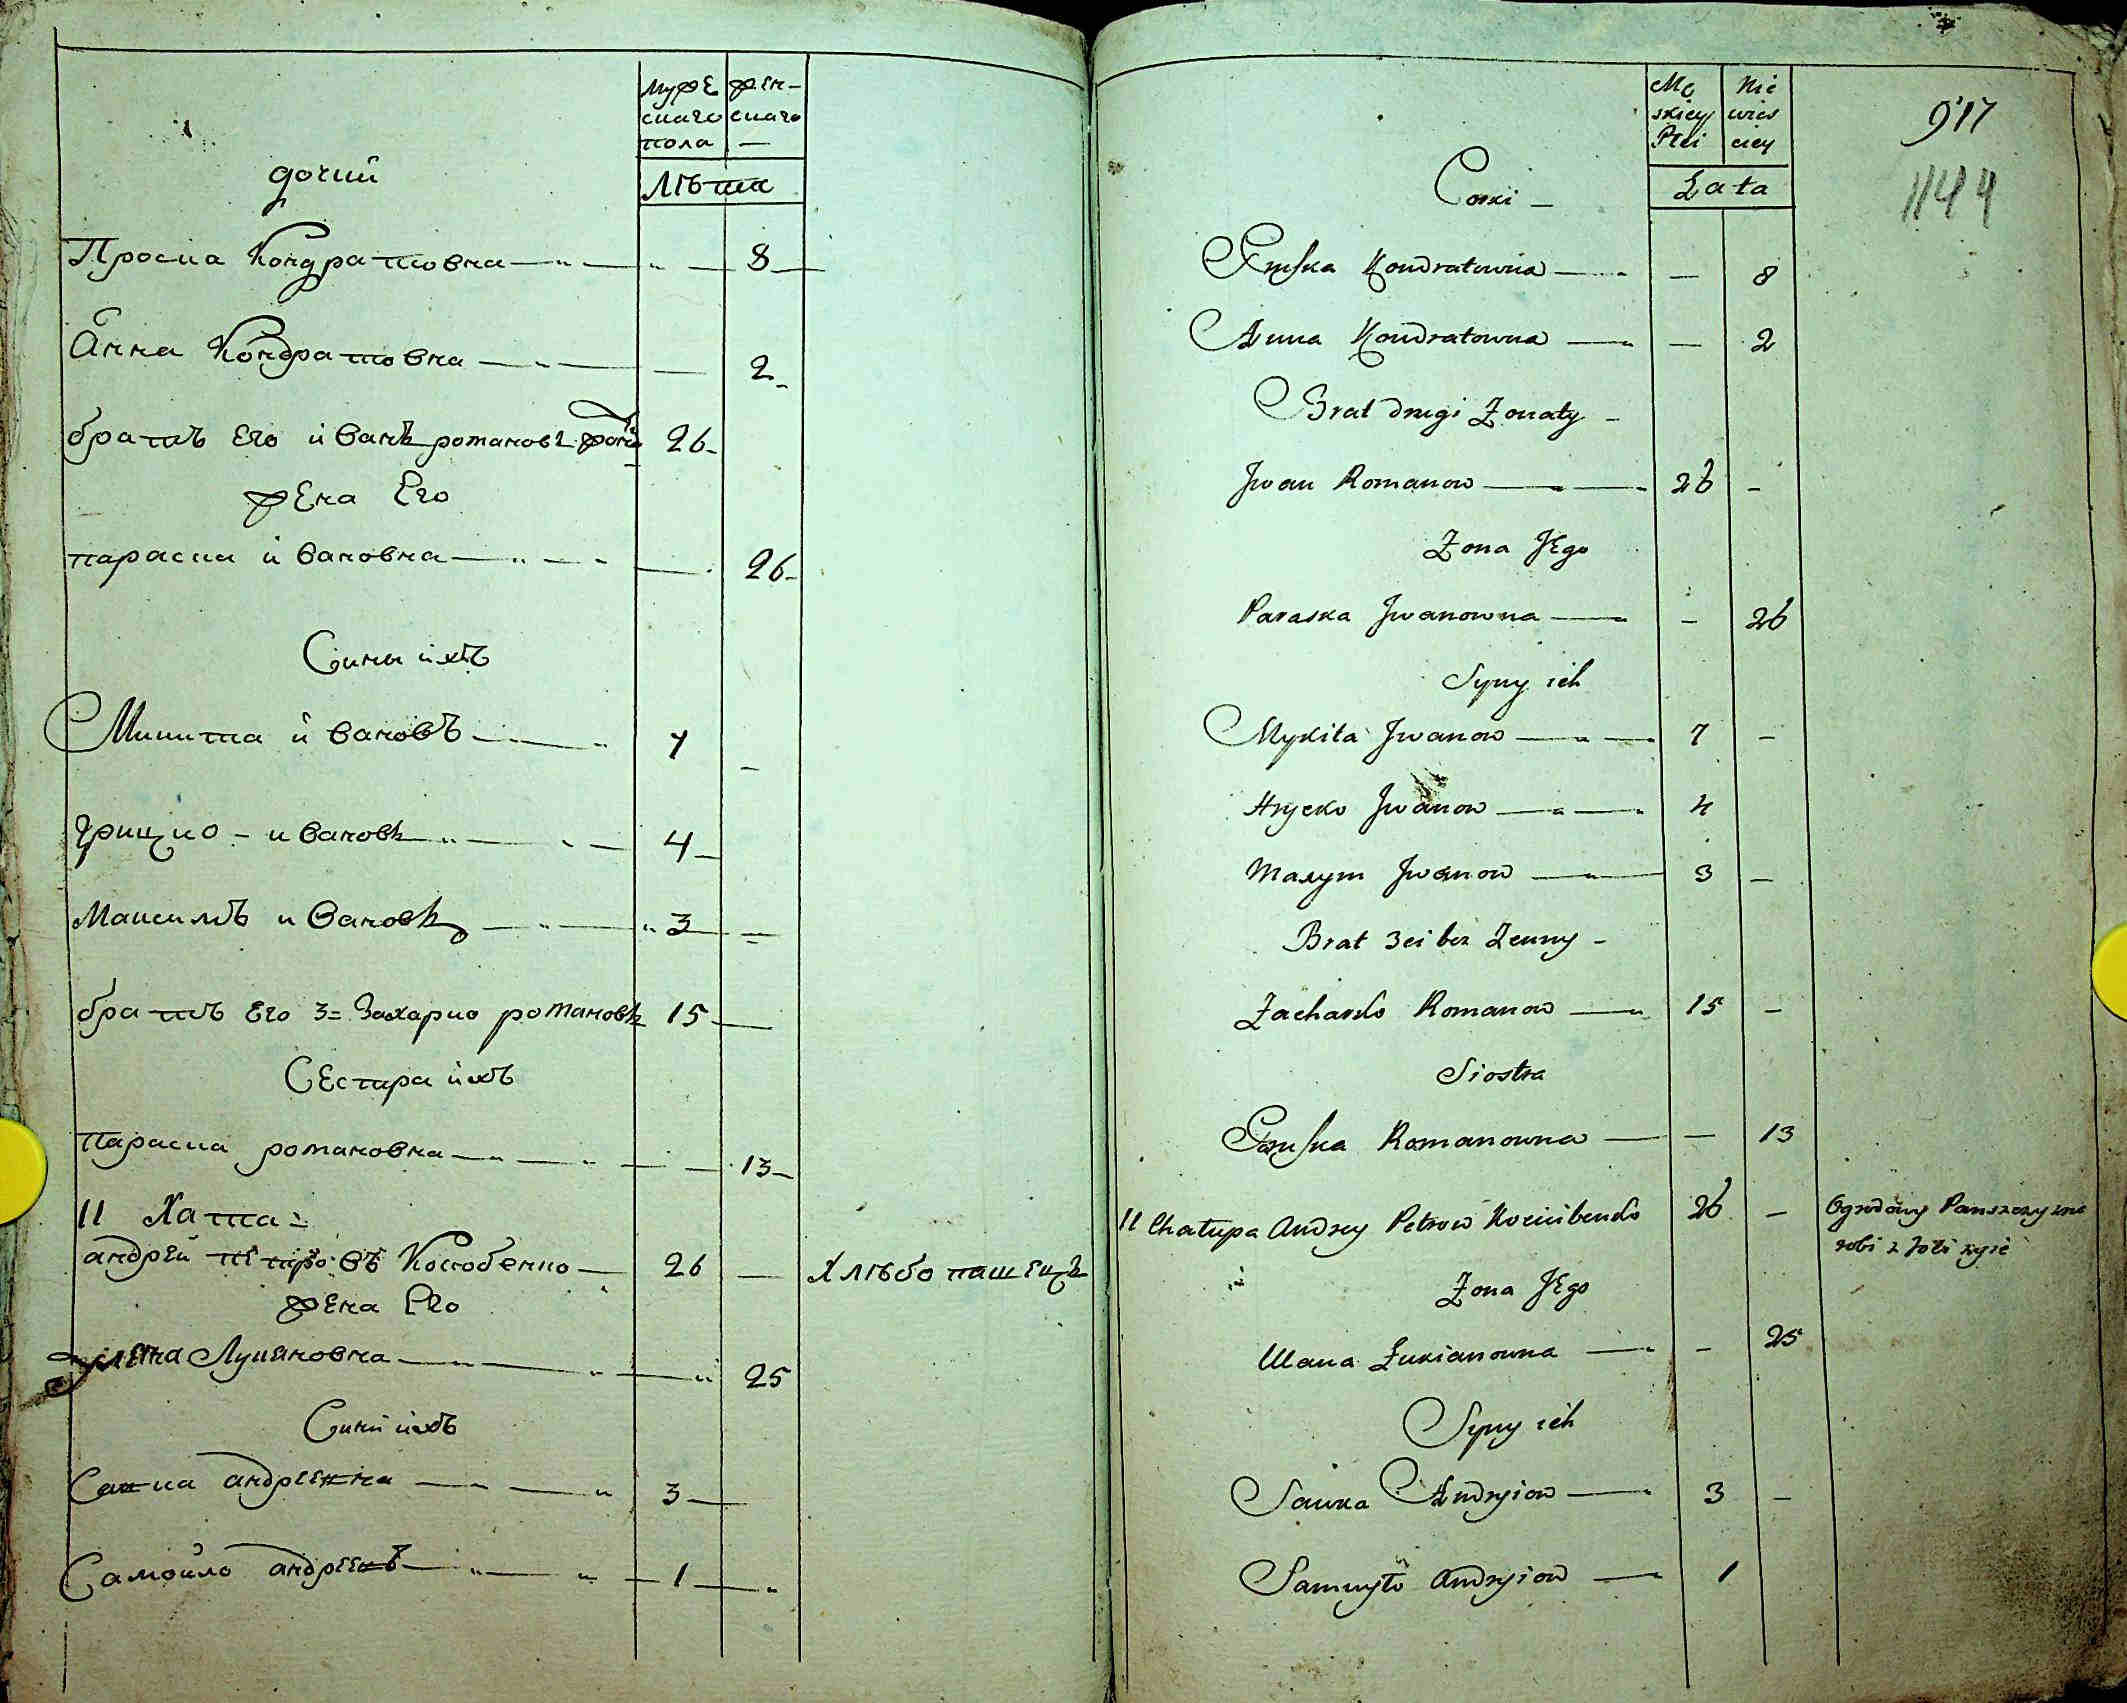 муже
скаго
пола
жен-
скаго
—
лѣта
дочки
Проска Кондратовна — 8
Анна Кондратовна — 2
братъ Его иванъ романовъ 26
жена Его
параска ивановна — 26
Сины ихъ
Микита ивановъ — 7
грицко - ивановъ — 4
Максимъ ивановъ — 3
братъ Его 3= Захарко романовъ 15
Сестра ихъ
параска романовна — 13
11 Хата
андрей петровъ 26 — Хлѣбопашецъ
жена Его
Лукяновна — 25
Сини ихъ
3
Самойло 1
Mę
skiey
Płci
Nie
wies
ciey
Lata
917
1144
Corki —
Kondratowna — 8
Anna Kondratowna — 2
Brat drugi Zonaty —
Jwan Romanow — 26 —
Zona JEgo
Paraska Jwanowna — 26
Syny ich
Mykita Jwanow — 7 —
Hrycko Jwanow — 4
Maxym Jwanow — 3 —
Brat 3ci bez Zenny —
Zacharko Romanow — 15 —
Siostra
Romanowna — 13
11 Chałupa Andrey Petrow 26 — Ogrodowy Panszczyzne
robi z
Zona JEgo
Ulana Łukianowna — 25
Syny ich
Sawka Andryiow — 3 —
Samuyło Andryiow — 1